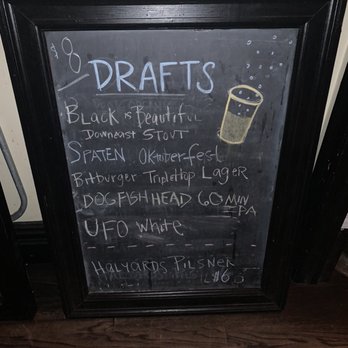 $8
DRAFTS
BLACK is Beautiful
Downeast STOUT
SPATEN Oktoberfest
Bitburger Triplehop LAGER
DOGFISH HEAD 60 MIN
IPA
UFO White
HALYARDS PILSNER